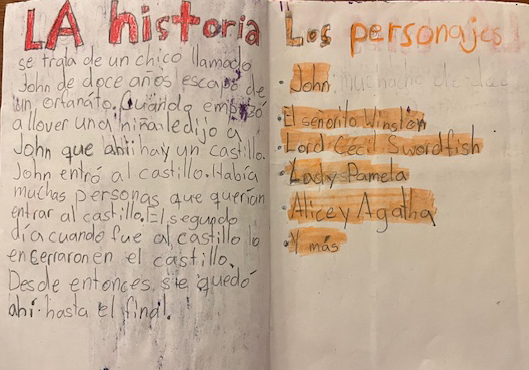 LA historia
se trata de un chico llamado
John de doce años escapó de
un orfanato. Cuándo empezó
a llover una niña le dijo a
John que ahti hay un castillo.
John entró al castillo. Había
muchas personas que querían
entrar al castillo. El segundo
día cuando fue al castillo lo
encerraron en el castillo.
Desde entonces s¡e quedó
ahí hasta el final.
Los personajes
• John
• El señorito Winston
• Lord Cecil Swordfish
• Lady Pamela
• Alice y Agatha
• Y más